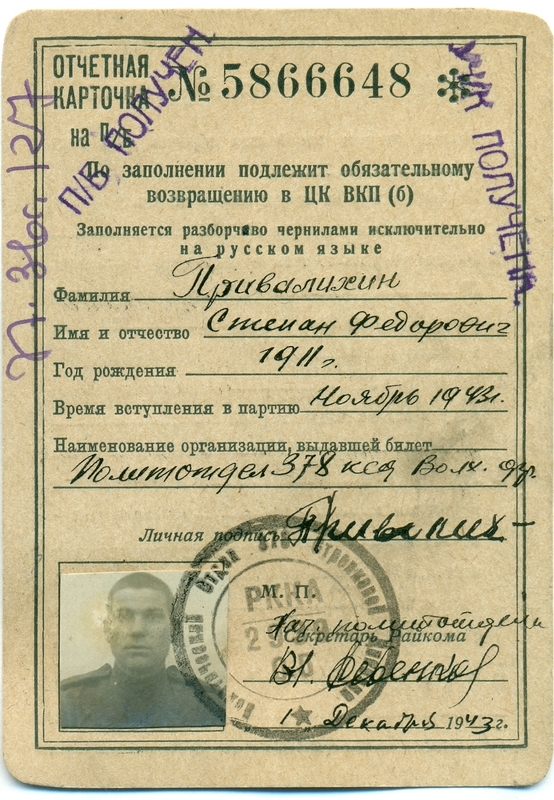 ОТЧЕТНАЯ
КАРТОЧКА
на П/б.
№ 5866648
П/Б ПОЛУЧЕН
ПОЛУЧЕНА
По заполнении подлежит обязательному
возвращению в ЦК ВКП (б)
Заполняется разборчиво чернилами исключительно
на русском языке
Фамилия Привалихин
Имя и отчество Степан Федорович
Год рождения 1911 г.
Время вступления в партию Ноябрь 1943г.
Наименование организации, выдавшей билет
Политотдел 378 ксд Волх. фр.
Личная подпись Привалих
М. П.
РККА
Нач. политотдела
Секретарь Райкома
1 Декабря 1943г.